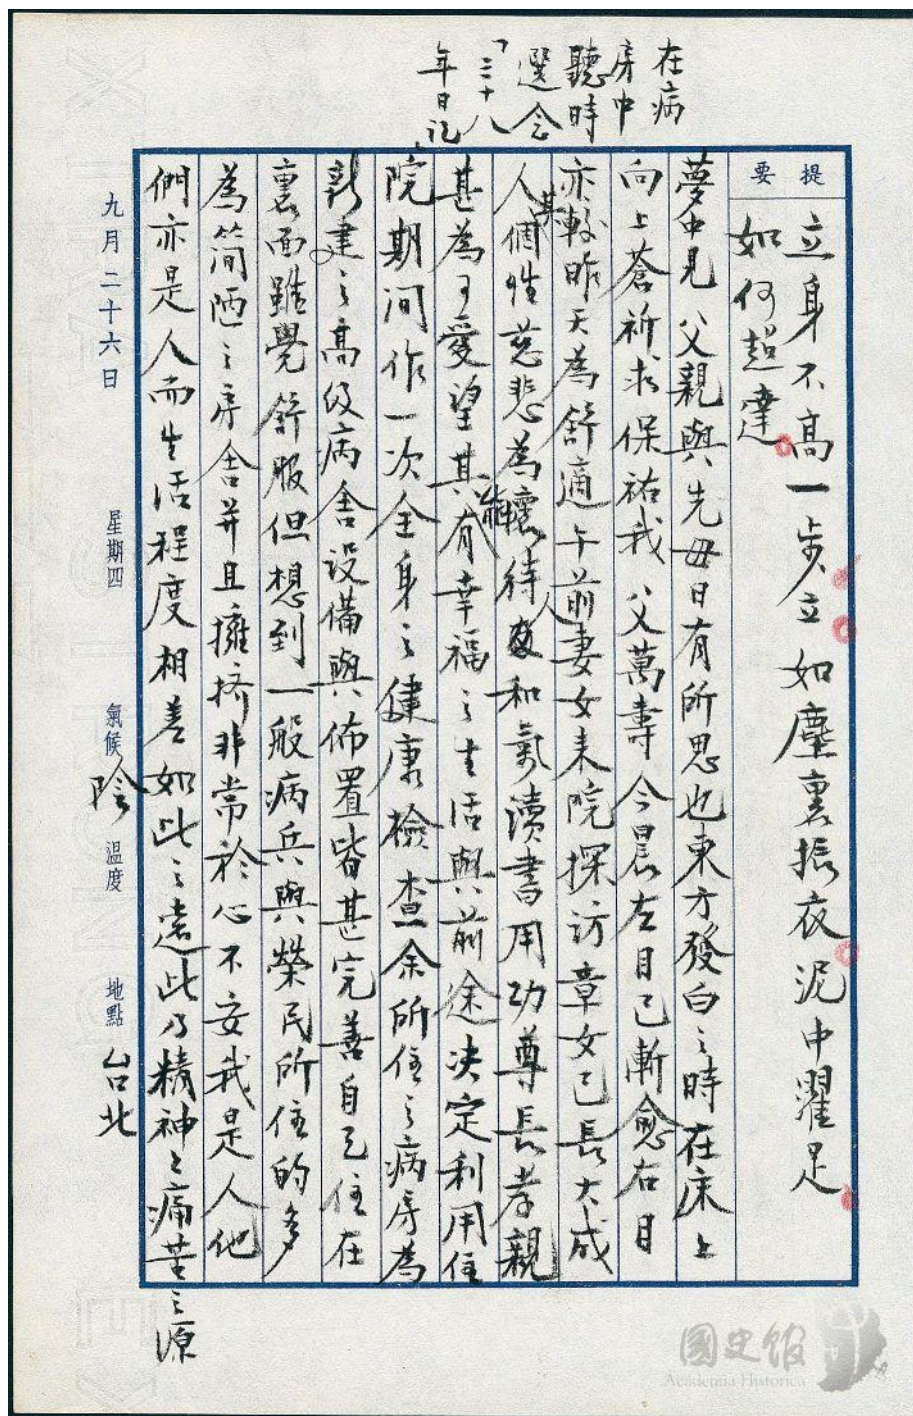 在病
房中
聽時
選念
「三十八
年日記」
提要
立身不高一步立如塵裏振衣泥中濯足
如何超達
夢中見 父親與先母日有所思也東方發白之時在床上
向上蒼祈求保祐我 父萬壽今晨左目已漸愈右目
亦較昨天為舒適午前妻女來院探訪章女已長大成
人其個性慈悲為懷待人和氣讀書用功尊長孝親
甚為可愛望其能有幸福之生活與前途決定利用住
院期間作一次全身之健康檢查余所住之病房為
新建之高級病舍設備與佈置皆甚完善自己住在
裏面雖覺舒服但想到一般病兵與榮民所住的多
為簡陋之房舍并且擁擠非常於心不安我是人他
們亦是人而生活程度相差如此之遠此乃精神之痛苦之源
九月二十六日 星期四 氣候 陰 溫度 地點 台北
國史館
Academia Historica